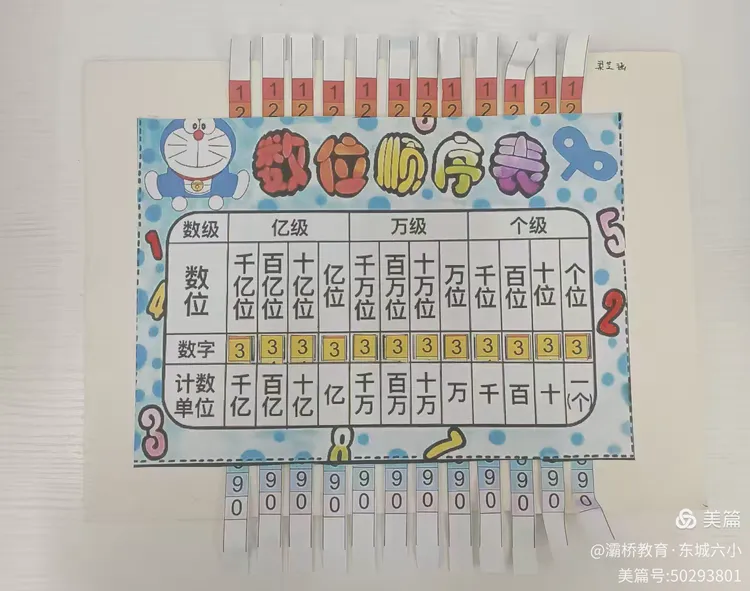 吴芝涵
1 1 1 1 1 1 1 1 1 1 1 1
2 2 2 2 2 2 2 2 2 2 2 2
数位顺序表
数级 亿级 万级 个级
数位 千亿位 百亿位 十亿位 亿位 千万位 百万位 十万位 万位 千位 百位 十位 个位
数字 3 3 3 3 3 3 3 3 3 3 3 3
计数单位 千亿 百亿 十亿 亿 千万 百万 十万 万 千 百 十 一(个)
1
4
3
8
1
5
2
9 9 9 9 9 9 9 9 9 9 9 9
0 0 0 0 0 0 0 0 0 0 0 0
美篇
@灞桥教育·东城六小
美篇号:50293801